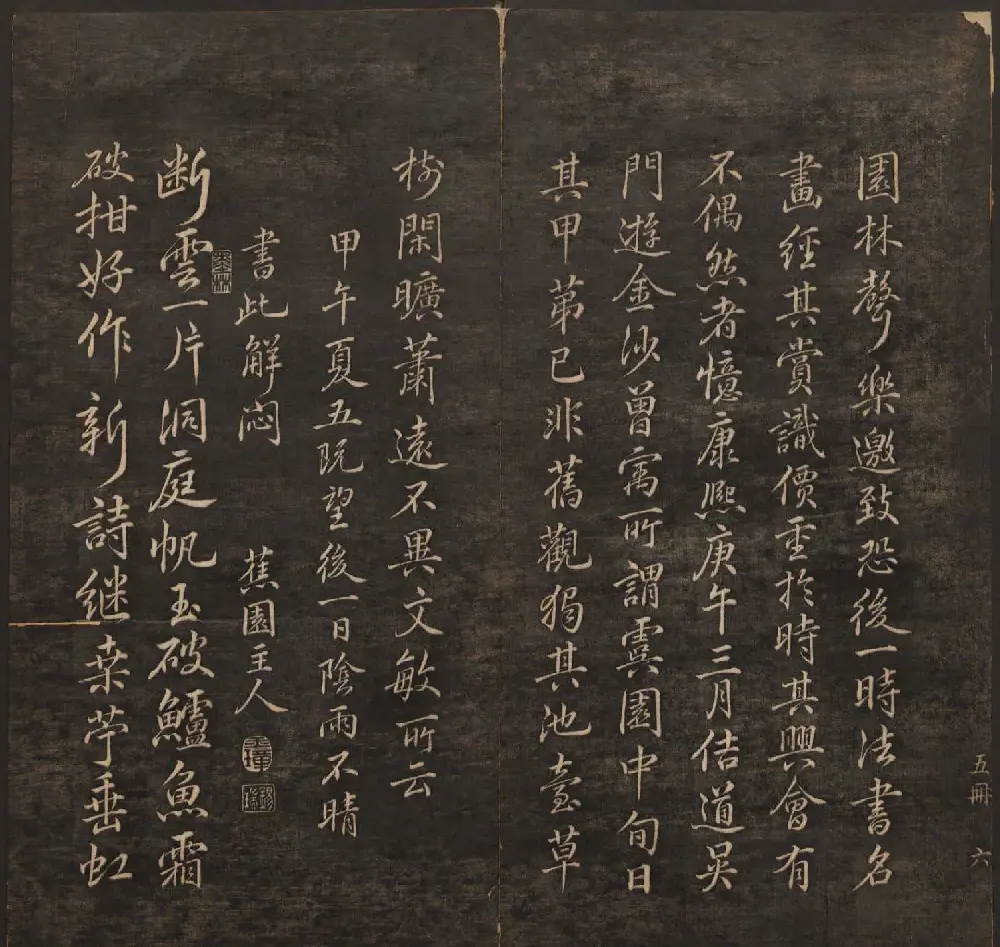 園林聲樂邀致恐後一時法書名
畫經其賞識價重於時其興會有
不偶然者憶康熙庚午三月佶道吳
門遊金沙曾寓所謂虞園中旬日
其甲第已非舊觀獨其池臺草
樹閑曠蕭遠不異文敏所云
甲午夏五既望後一日陰雨不晴
書此解悶
蕉園主人
断雲一片洞庭帆玉破鱸魚霜
破柑好作新詩継桒苧垂虹
五冊 六